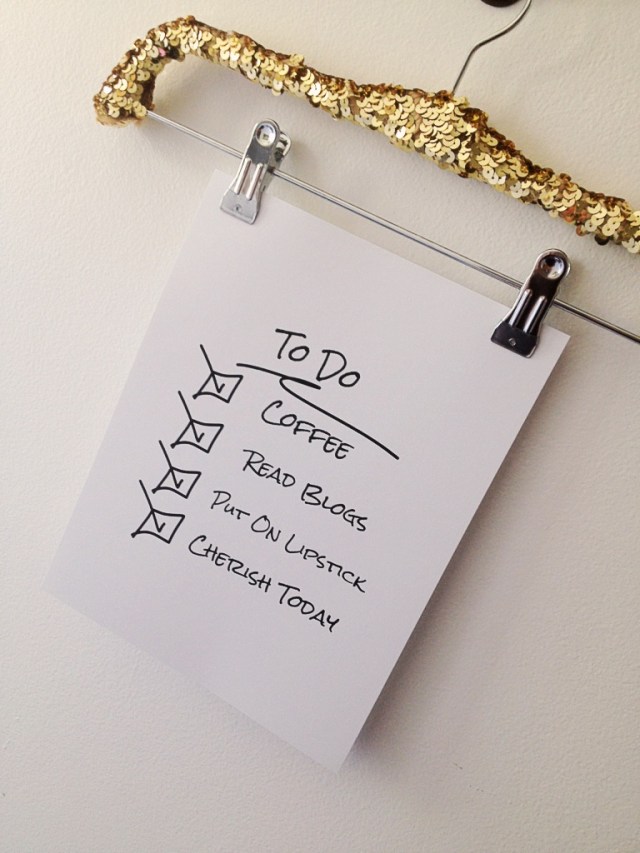 To Do
Coffee
Read Blogs
Put On Lipstick
Cherish Today